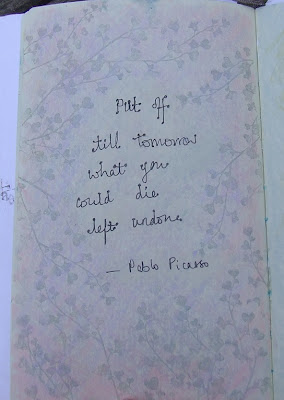 Put off
till tomorrow
what you
could die
left undone
— Pablo Picasso